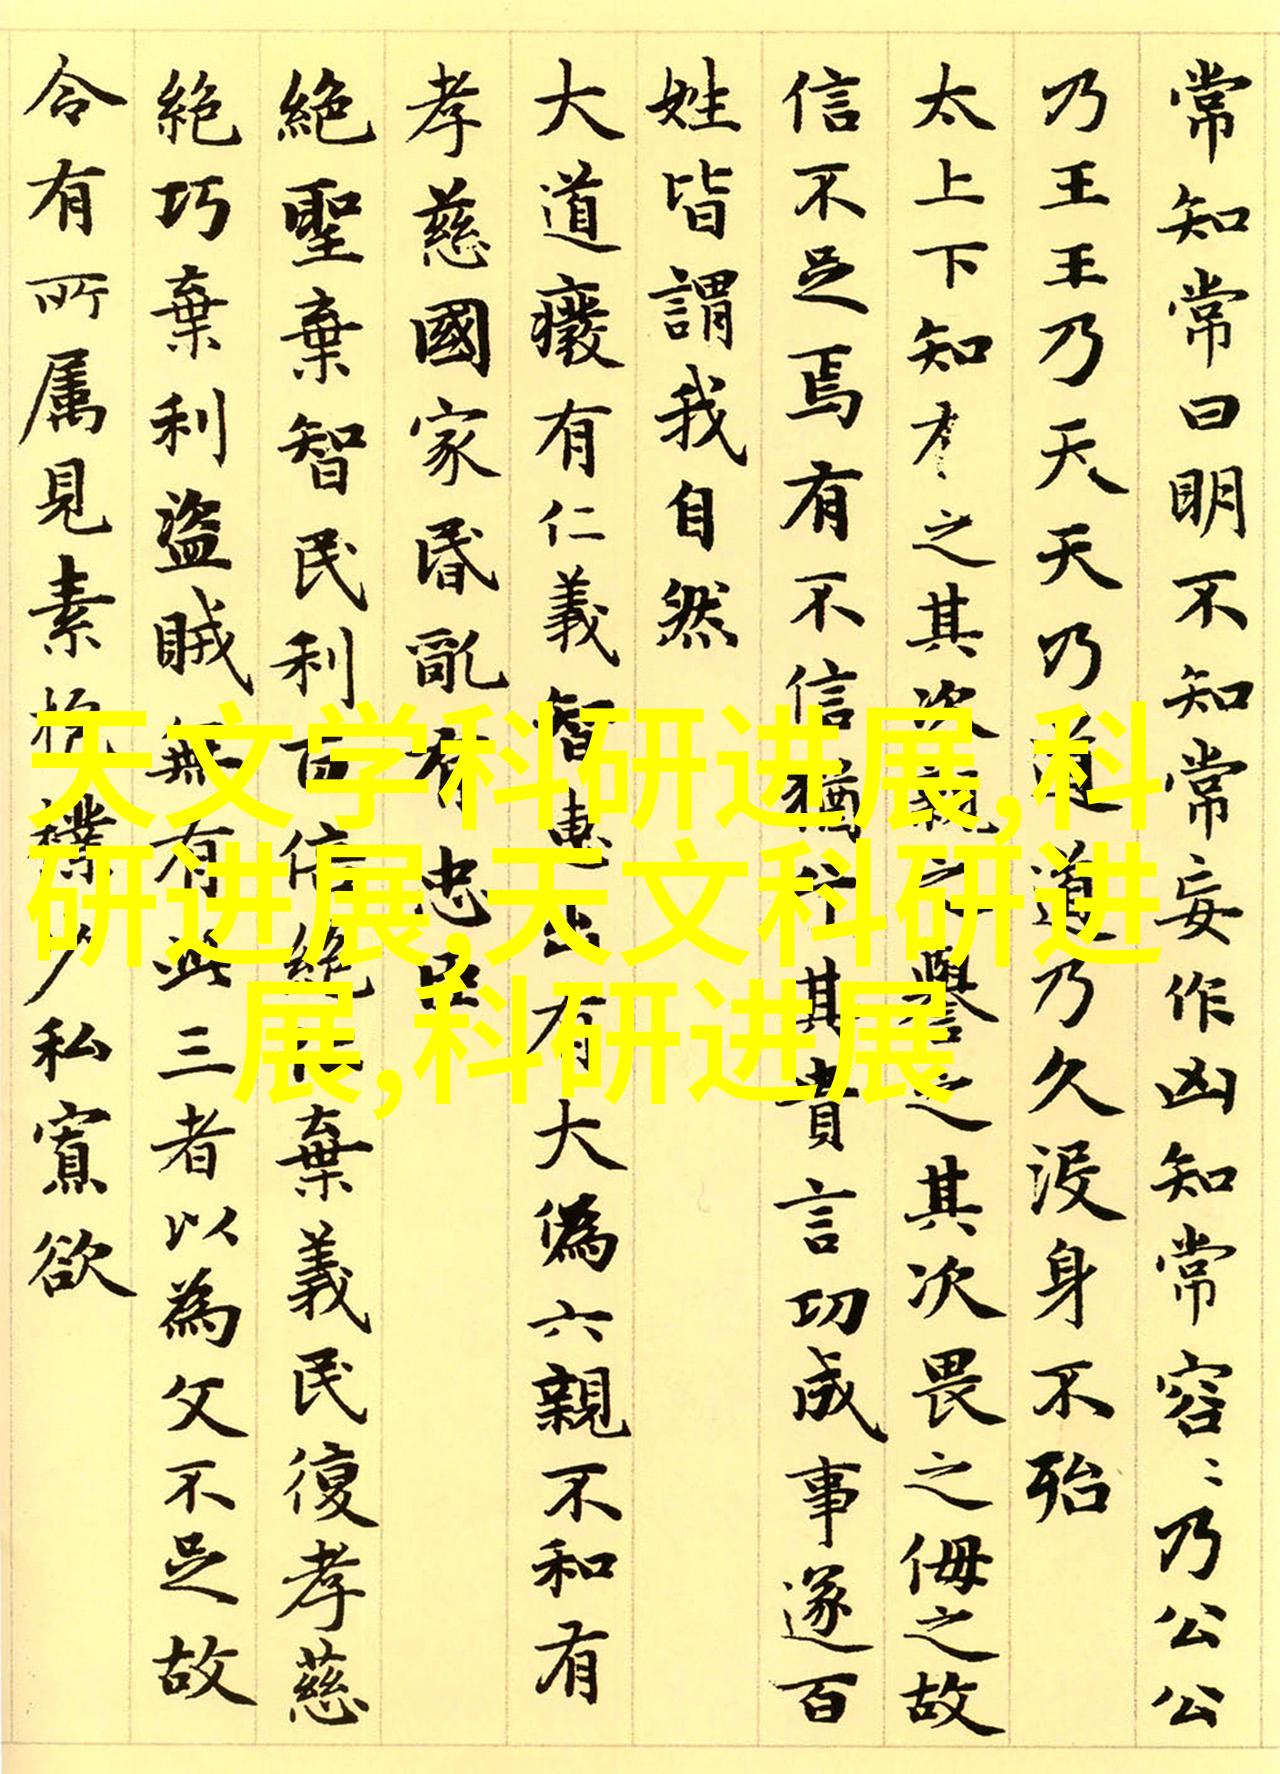 常知常曰明不知知常妄作凶知常容〻乃公公
乃王王乃天天乃道道乃久没身不殆
太上下知有之其次親之譽之其次畏之侮之故
信不足焉有不信猶其貴言功成事遂百
姓皆謂我自然
大道癈有仁義智惠出有大偽六親不和有
孝慈國家昏亂有忠臣
絶聖棄智民利百倍絶仁棄義民復孝慈
絶巧棄利盜賊無有此三者以為文不足故
令有所属見素抱樸少私寡欲
天文学科研进展,科
研进展,天文科研进
展,科研进展